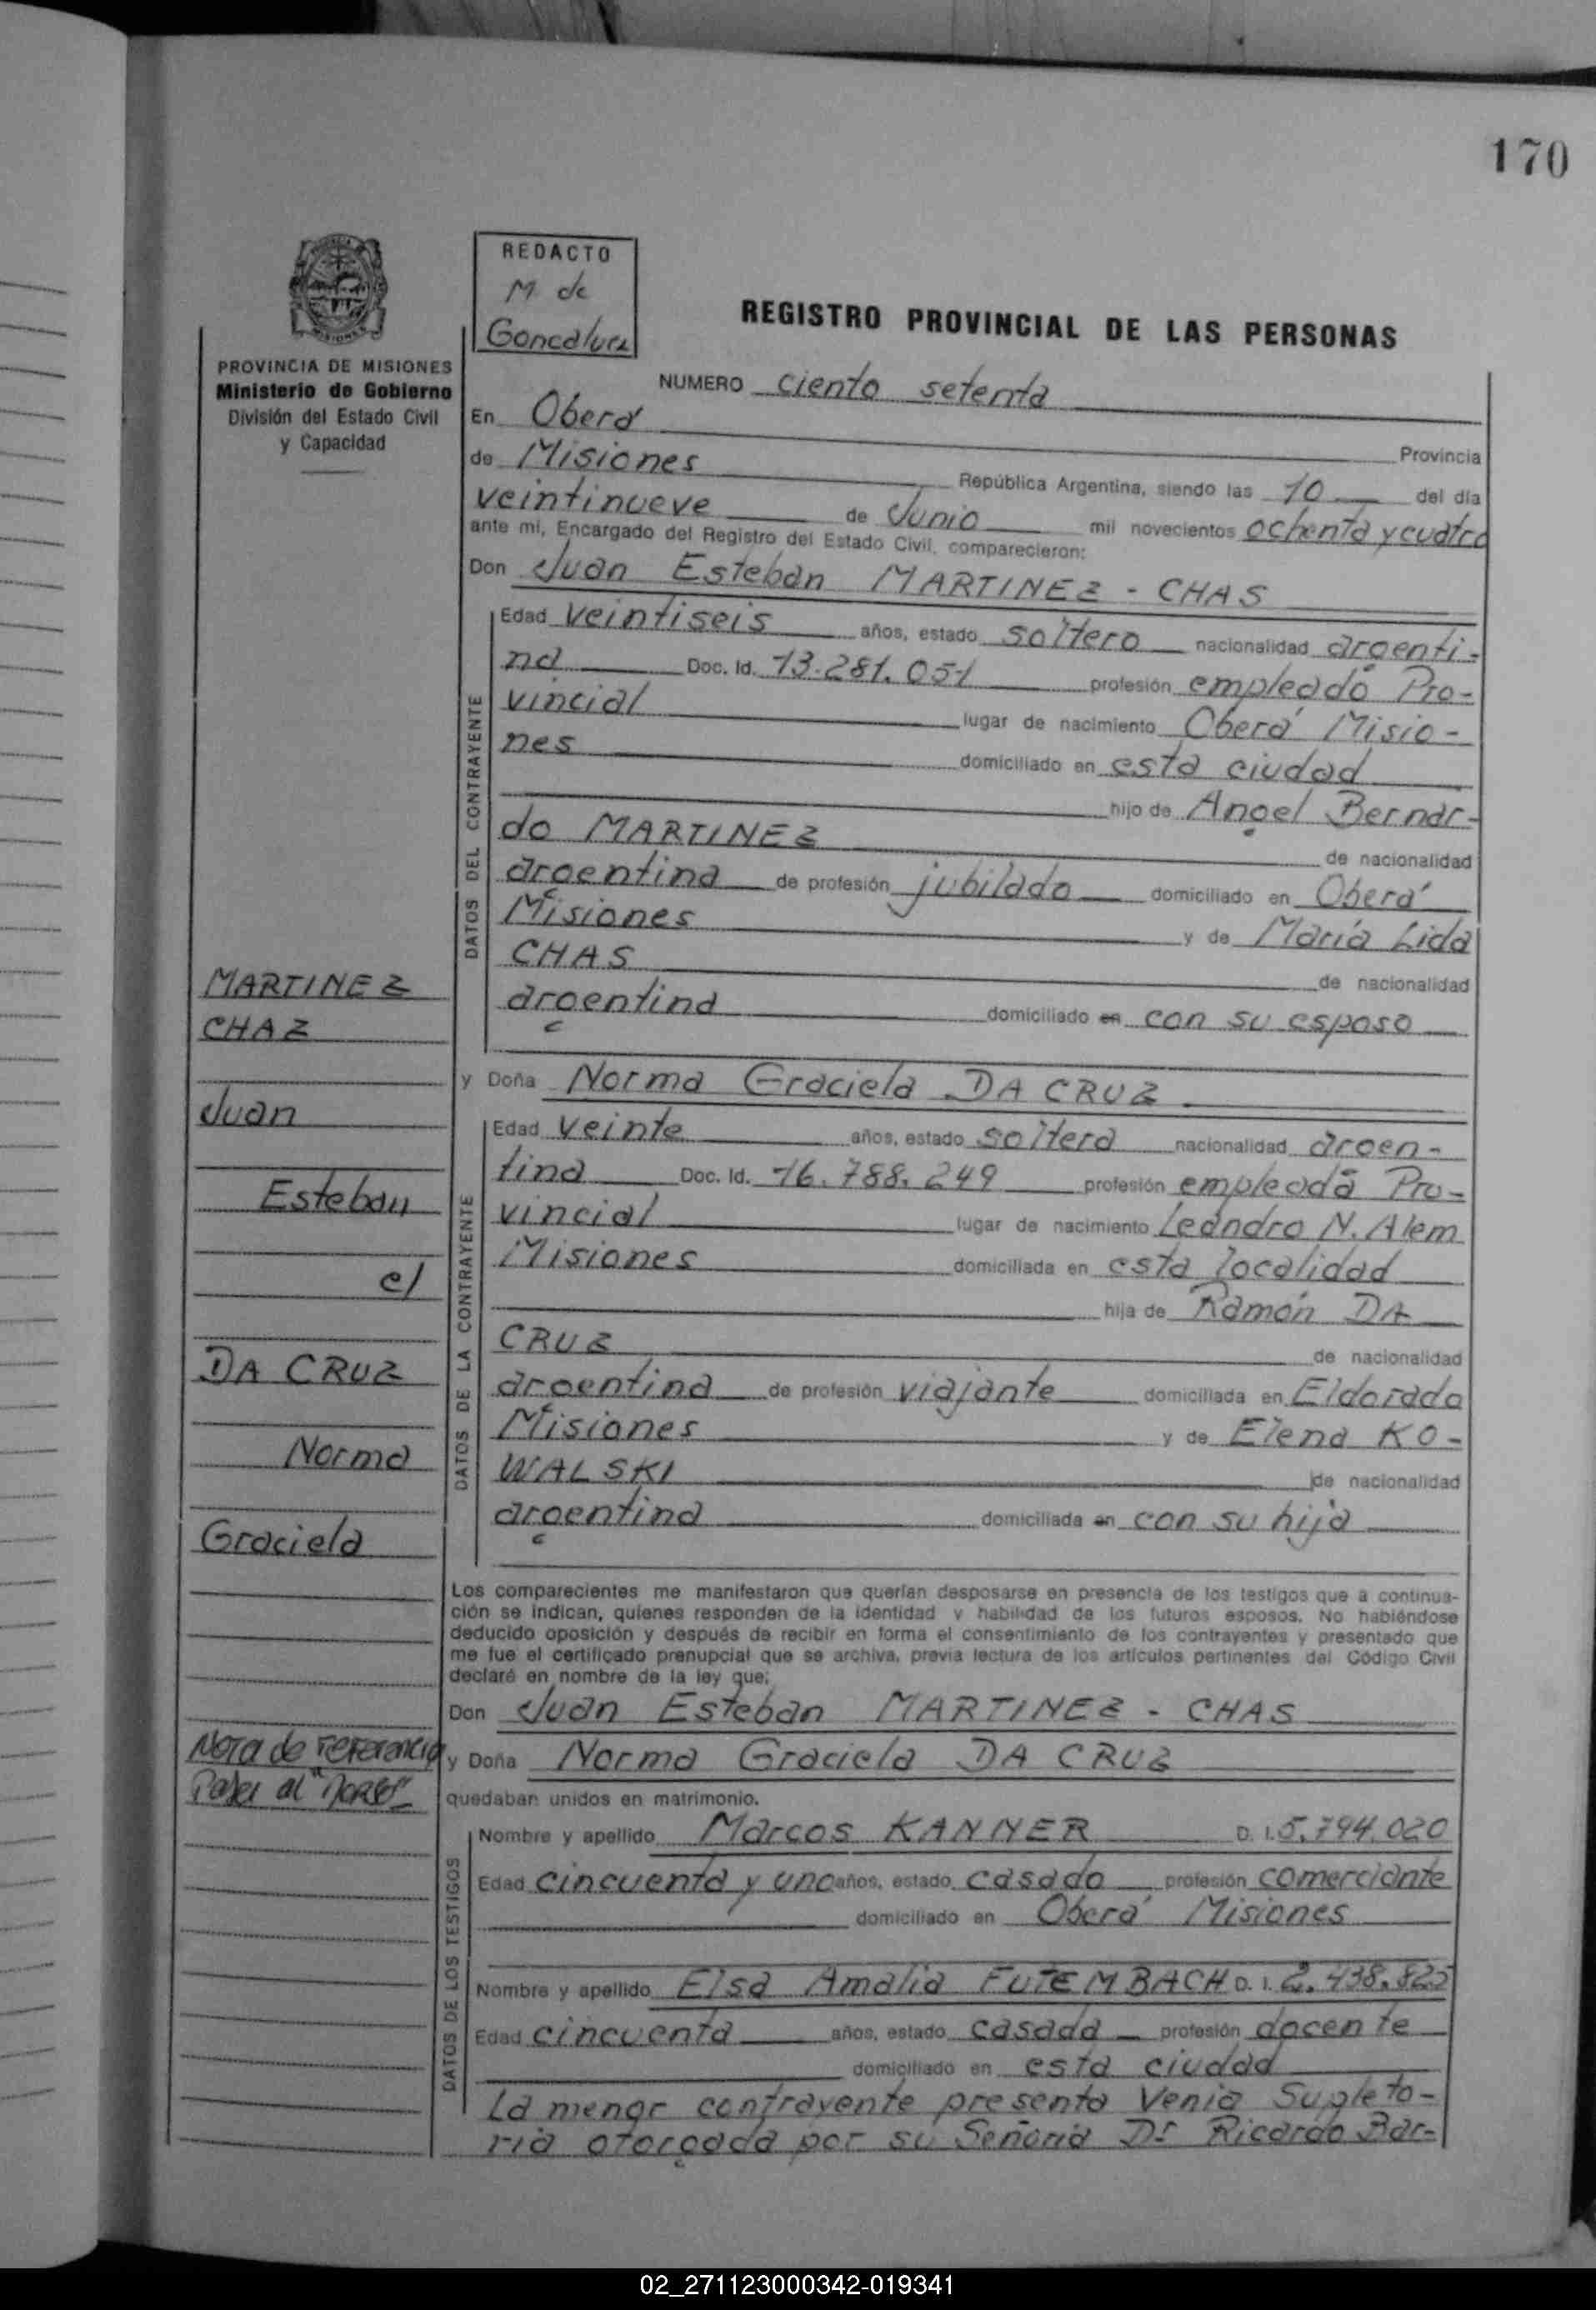 170
REDACTO
M. de
Goncalvez
REGISTRO PROVINCIAL DE LAS PERSONAS
PROVINCIA DE MISIONES
Ministerio de Gobierno
División del Estado Civil
y Capacidad
NUMERO ciento setenta
En Oberá
Provincia
de Misiones República Argentina, siendo las 10 del día
veintinueve de Junio mil novecientos ochenta y cuatro
ante mi, Encargado del Registro del Estado Civil, comparecieron:
Don Juan Esteban MARTINEZ - CHAS
DATOS DEL CONTRAYENTE
Edad veintiseis años, estado soltero nacionalidad argenti-
na Doc. Id. 13.281.051 profesión empleado Pro-
vincial lugar de nacimiento Oberá Misio-
nes domiciliado en esta ciudad
hijo de Angel Bernar-
do MARTINEZ de nacionalidad
argentina de profesión jubilado domiciliado en Oberá
Misiones y de María Lida
CHAS de nacionalidad
argentina domiciliado en con su esposo
MARTINEZ
CHAZ
Juan
Esteban
c/
DA CRUZ
Norma
Graciela
y Doña Norma Graciela DA CRUZ
DATOS DE LA CONTRAYENTE
Edad veinte años, estado soltera nacionalidad argen-
tina Doc. Id. 16.788.249 profesión empleada Pro-
vincial lugar de nacimiento Leandro N. Alem
Misiones domiciliada en esta localidad
hija de Ramón DA
CRUZ de nacionalidad
argentina de profesión viajante domiciliada en Eldorado
Misiones y de Elena KO-
WALSKI de nacionalidad
argentina domiciliada en con su hija
Los comparecientes me manifestaron que querían desposarse en presencia de los testigos que a continua-
ción se indican, quienes responden de la identidad y habilidad de los futuros esposos. No habiéndose
deducido oposición y después de recibir en forma el consentimiento de los contrayentes y presentado que
me fue el certificado prenupcial que se archiva, previa lectura de los artículos pertinentes del Código Civil
declaré en nombre de la ley que:
Don Juan Esteban MARTINEZ - CHAS
Nota de referencia
Pasa al "
y Doña Norma Graciela DA CRUZ
quedaban unidos en matrimonio.
DATOS DE LOS TESTIGOS
Nombre y apellido Marcos KANNER D. I. 5.794.020
Edad cincuenta y uno años, estado casado profesión comerciante
domiciliado en Oberá Misiones
Nombre y apellido Elsa Amalia FUTEMBACH D. I. 2.438.825
Edad cincuenta años, estado casada profesión docente
domiciliado en esta ciudad
La menor contrayente presenta Venia Supleto-
ria otorgada por su Señoria Dr Ricardo Bar-
02_271123000342-019341